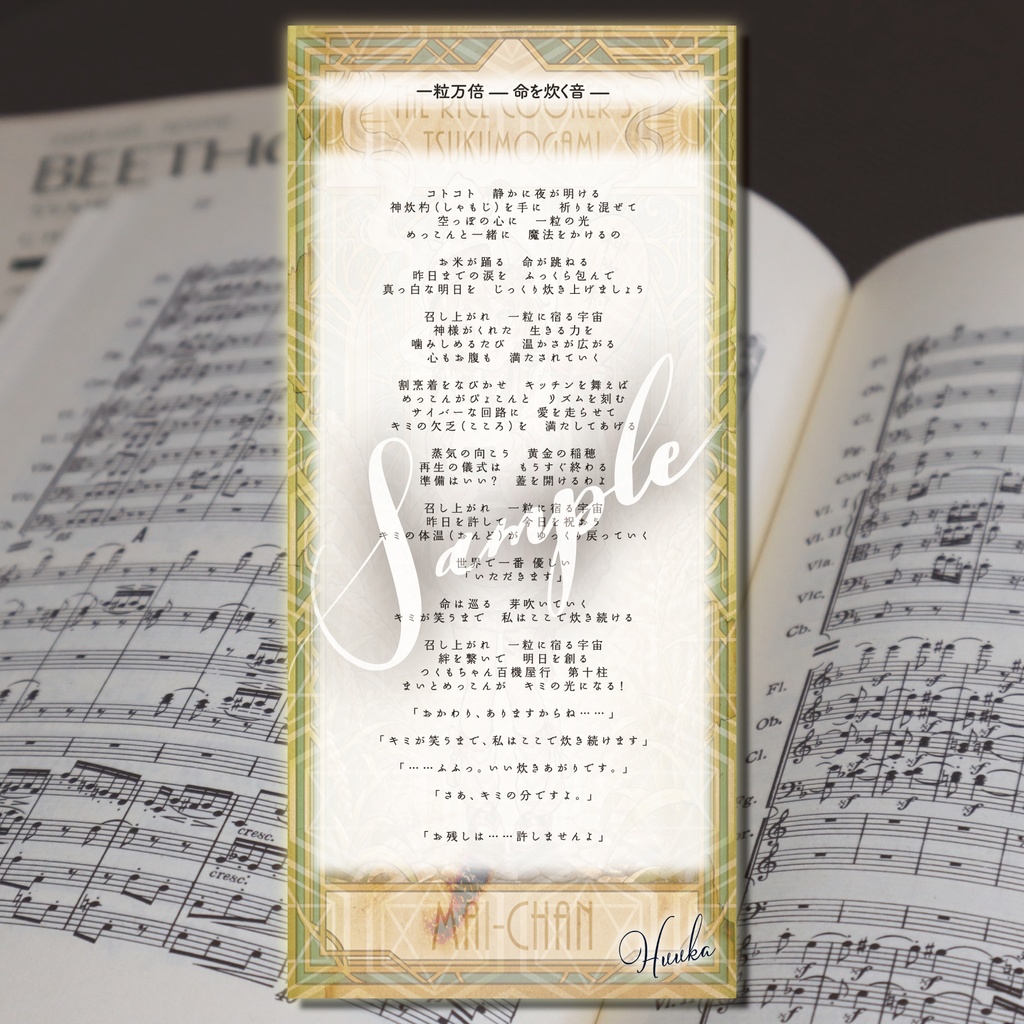 BEETHO
一粒万倍 ― 命を炊く音 ―
THE RICE COOKER'S
TSUKUMOGAMI
コトコト　静かに夜が明ける
神炊杓(しゃもじ)を手に　祈りを混ぜて
空っぽの心に　一粒の光
めっこんと一緒に　魔法をかけるの
お米が踊る　命が跳ねる
昨日までの涙を　ふっくら包んで
真っ白な明日を　じっくり炊き上げましょう
召し上がれ　一粒に宿る宇宙
神様がくれた　生きる力を
噛みしめるたび　温かさが広がる
心もお腹も　満たされていく
割烹着をなびかせ　キッチンを舞えば
めっこんがぴょこんと　リズムを刻む
サイバーな回路に　愛を走らせて
キミの欠乏(こころ)を　満たしてあげる
蒸気の向こう　黄金の稲穂
再生の儀式は　もうすぐ終わる
準備はいい？　蓋を開けるわよ
召し上がれ　一粒に宿る宇宙
昨日を許して　今日を祝おう
キミの体温(おんど)が　ゆっくり戻っていく
世界で一番 優しい
「いただきます」
命は巡る　芽吹いていく
キミが笑うまで　私はここで炊き続ける
召し上がれ　一粒に宿る宇宙
絆を繋いで　明日を創る
つくもちゃん百機屋行　第十柱
まいとめっこんが　キミの光になる！
「おかわり、ありますからね……」
「キミが笑うまで、私はここで炊き続けます」
「……ふふっ。いい炊きあがりです。」
「さあ、キミの分ですよ。」
「お残しは……許しませんよ」
Sample
MAI-CHAN
Huuka
A
cresc.
cresc.
Vla.
Vlc.
Cb.
Fl.
Ob.
Cl.